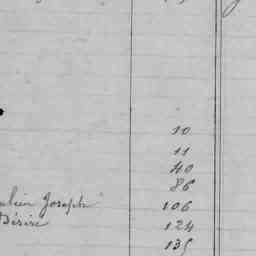 10
11
40
86
Joseph 106
Désiré 124
135